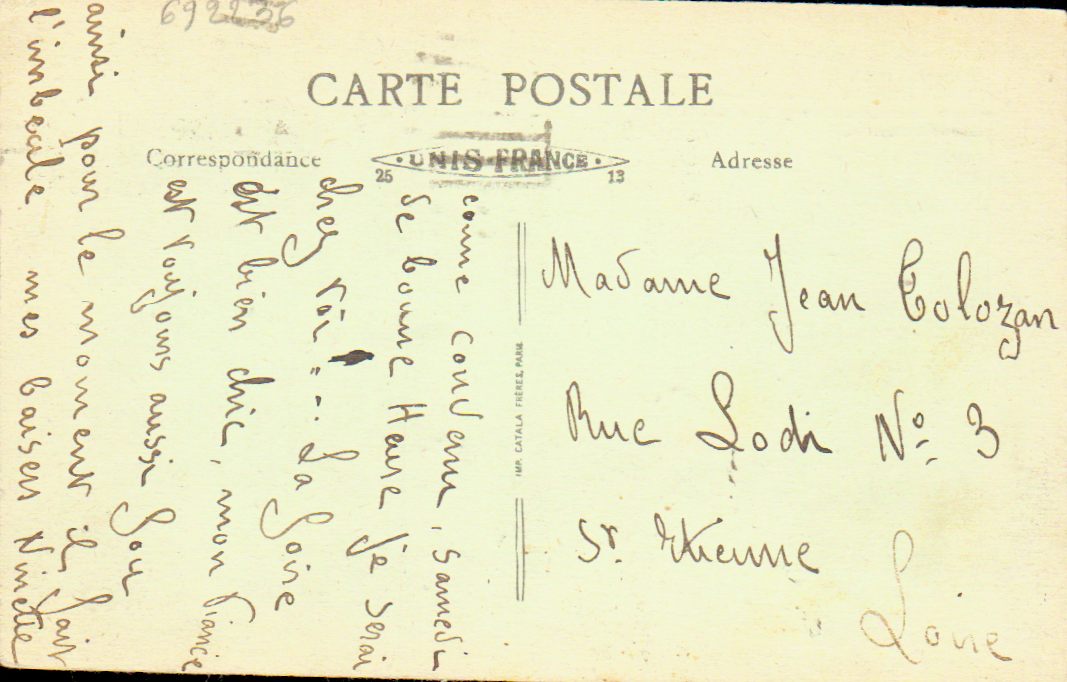 692236
CARTE POSTALE
Correspondance
UNIS-FRANCE
25
13
Adresse
comme convenu, samedi
de bonne Heure je serai
chez toi " - . La Soirée
est bien chic, mon fiancé
est toujours aussi fou
ainsi pour le moment il fait
l'imbecile mes baisers Ninette
IMP. CATALA FRÈRES, PARIS
Madame Jean Colozan
Rue Lodi No 3
St. Etienne
Loire